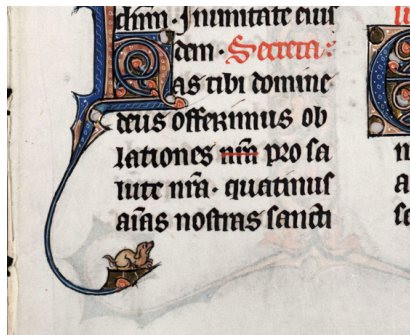 dñm · In unitate eius
dem · Secreta:
Has tibi domine
deus offerimus ob
lationes nr̃m pro sa
lute nr̃a · quatinus
aĩas nostras sancti